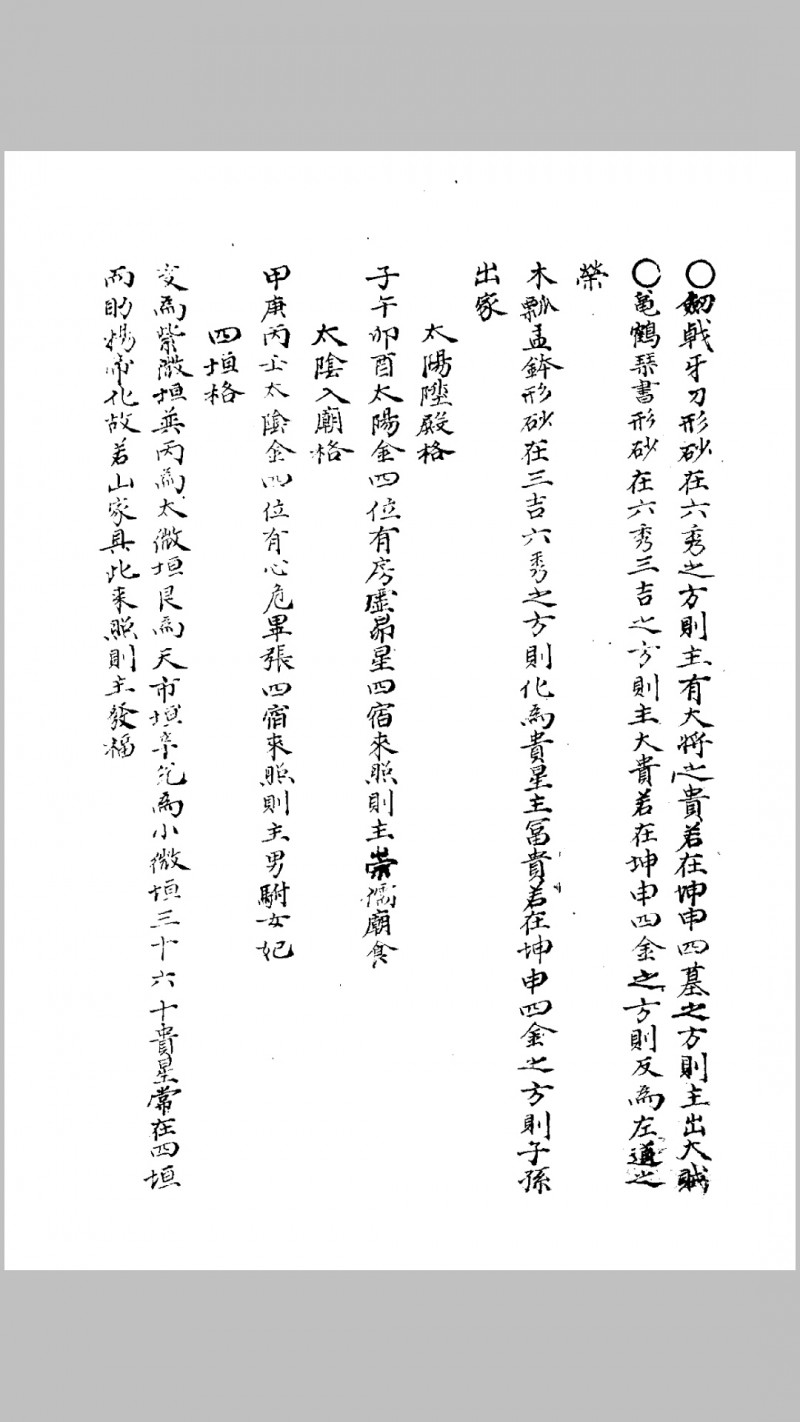 〇劒戟牙刀形砂在六秀之方則主有大將之貴若在坤申四墓之方則主出大賊
〇亀鶴琴書形砂在六秀三吉之方則主大貴若在坤申四金之方則反為左道之
榮
木瓢盂鉢形砂在三吉六秀之方則化為貴星主冨貴若在坤申四金之方則子孫
出家
太陽陞殿格
子午卯酉太陽金四位有房虛昴星四宿來照則主崇儒廟食
太陰入廟格
甲庚丙壬太陰金四位有心危畢張四宿來照則主男駙女妃
四垣格
亥為紫微垣巽丙為太微垣艮為天市垣辛兌為小微垣三十六十貴星常在四垣
而助揚帝化故若山家具此來照則主發福